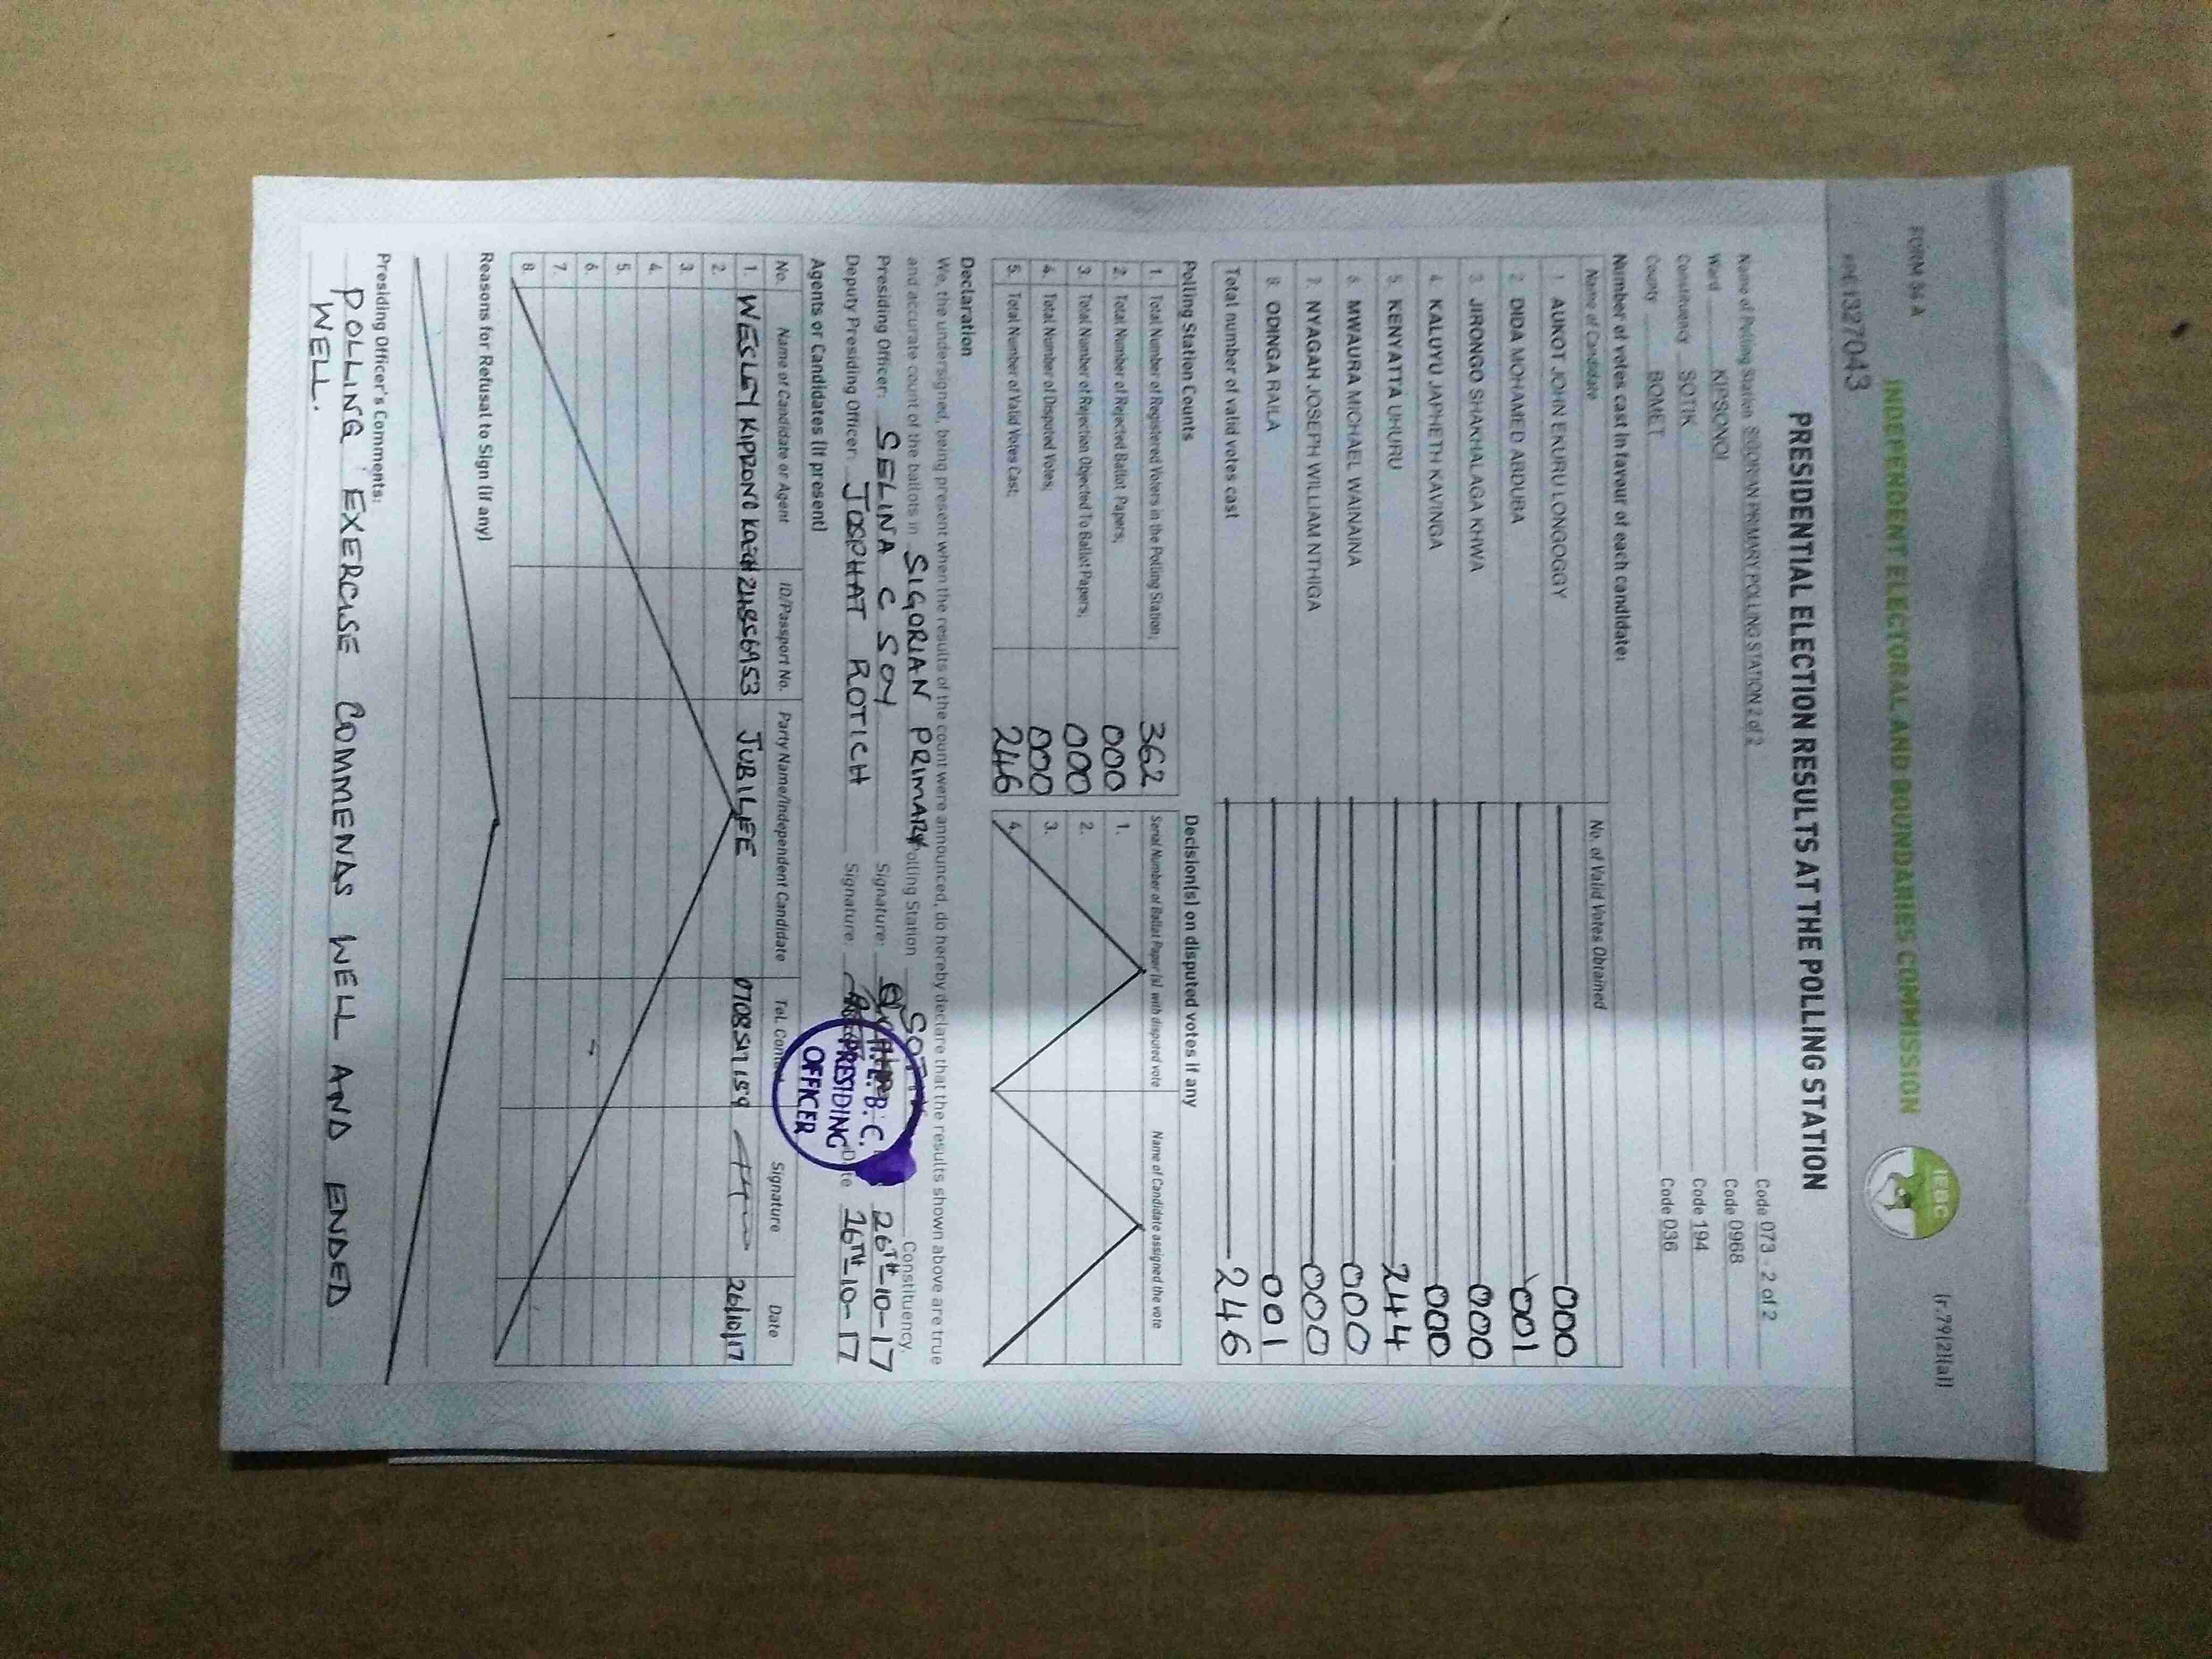 FORM 34 A
(r.79(2)(a))
INDEPENDENT ELECTORAL AND BOUNDARIES COMMISSION
IEBC
1327043
PRESIDENTIAL ELECTION RESULTS AT THE POLLING STATION
Name of Polling Station SIGORIAN PRIMARY POLLING STATION 2 of 2 Code 073 - 2 of 2
Ward KIPSONOI Code 0968
Constituency SOTIK Code 194
County BOMET Code 036
Number of votes cast in favour of each candidate:
Name of Candidate No. of Valid Votes Obtained
1. AUKOT JOHN EKURU LONGOGGY 000
2. DIDA MOHAMED ABDUBA 001
3. JIRONGO SHAKHALAGA KHWA 000
4. KALUYU JAPHETH KAVINGA 000
5. KENYATTA UHURU 244
6. MWAURA MICHAEL WAINAINA 000
7. NYAGAH JOSEPH WILLIAM NTHIGA 000
8. ODINGA RAILA 001
Total number of valid votes cast 246
Polling Station Counts
1. Total Number of Registered Voters in the Polling Station; 362
2. Total Number of Rejected Ballot Papers; 000
3. Total Number of Rejection Objected To Ballot Papers; 000
4. Total Number of Disputed Votes; 000
5. Total Number of Valid Votes Cast; 246
Decision(s) on disputed votes if any
Serial Number of Ballot Paper (s) with disputed vote Name of Candidate assigned the vote
1.
2.
3.
4.
Declaration
We, the undersigned, being present when the results of the count were announced, do hereby declare that the results shown above are true
and accurate count of the ballots in SIGORIAN PRIMARY Polling Station SOTIK Constituency.
Presiding Officer: SELINA C SOY Signature: 26TH-10-17
Deputy Presiding Officer: JOSPHAT ROTICH Signature: Date 26TH-10-17
I.E.B.C.
PRESIDING
OFFICER
Agents or Candidates (if present)
No. Name of Candidate or Agent ID/Passport No. Party Name/Independent Candidate Tel. Contact Signature Date
1. WESLEY KIPRONO JUBILEE 26/10/17
2.
3.
4.
5.
6.
7.
8.
Reasons for Refusal to Sign (if any)
Presiding Officer's Comments:
POLLING EXERCISE COMMENDS WELL AND ENDED
WELL.